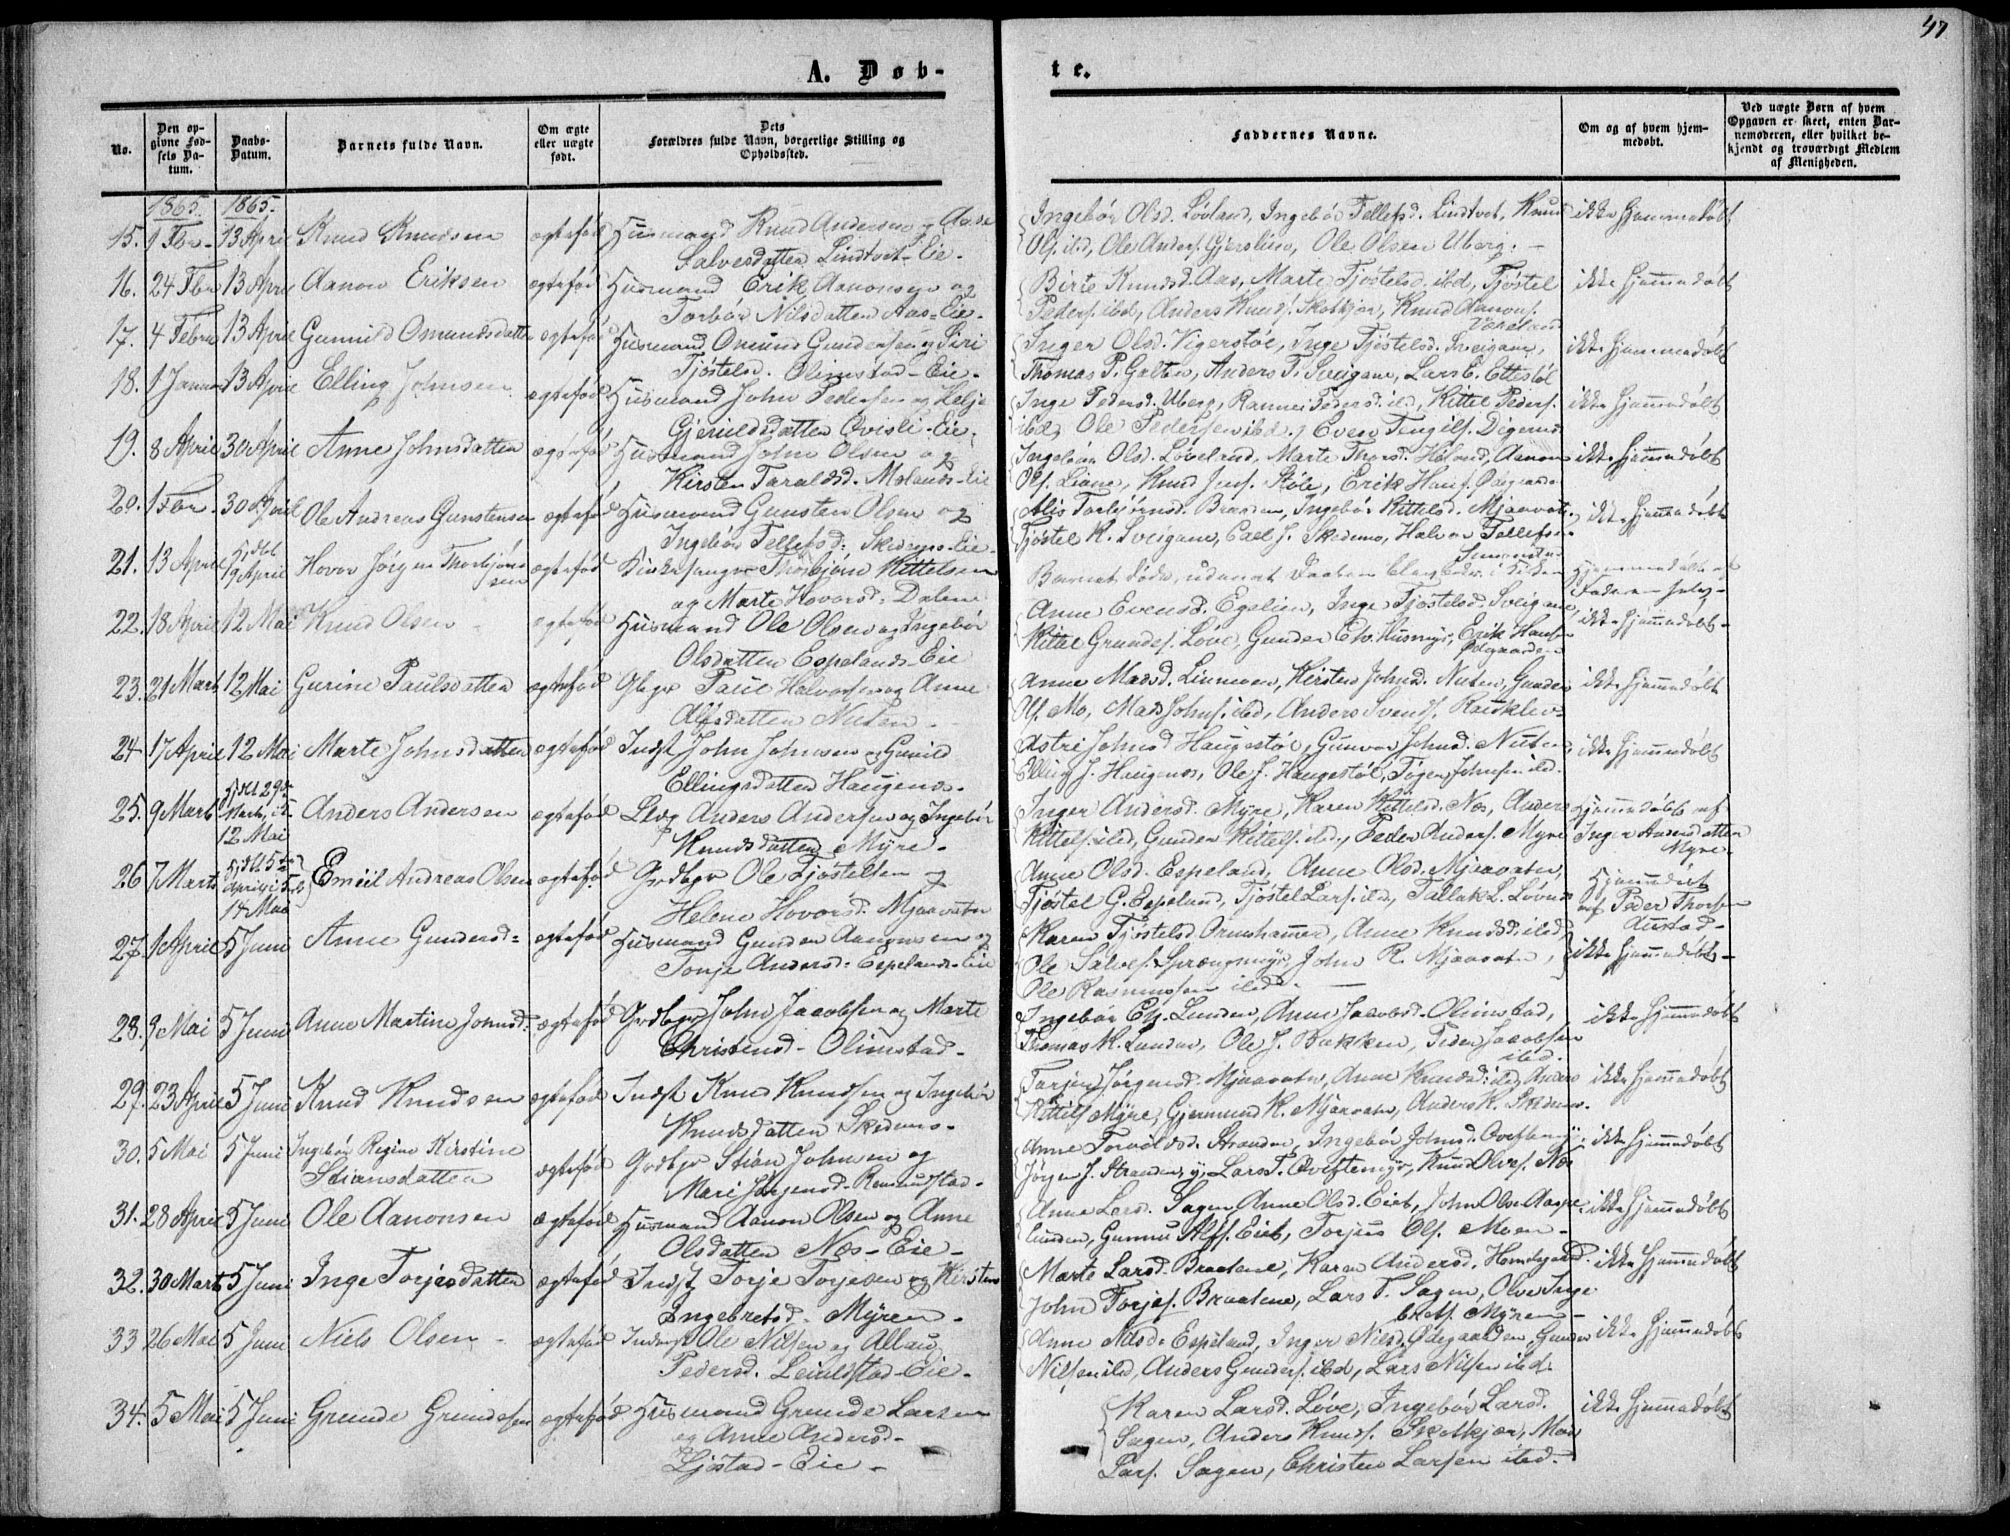 47
A. Døb-
te.
No.
Den opgivne Fødsels Datum.
Daabs-Datum.
Barnets fulde Navn.
Om ægte eller uægte født.
Dets Forældres fulde Navn, borgerlige Stilling og Opholdssted.
Faddernes Navne.
Om og af hvem hjemmedøbt.
Ved uægte Børn af hvem Opgaven er skeet, enten Barnemoderen, eller hvilket bekjendt og troværdigt Medlem af Menigheden.
1865. 1865.
15. 9 Fbr. 13 April Knud Knudsen ægtefød Husmand Knud Andersen og Aase
Salvesdatten Lindtvet-Eie.
Ingebór Olsd. Lövland, Ingebór Tellefsd. Lindtvet, Knud
Ols. ibd, Ole Anders. Gjerslien, Ole Olsen Uberg.
ikke hjemmedøbt
16. 24 Fbr 13 April Aanon Eriksen ægtefød Husmand Erik Aanonsen og
Torbór Nilsdatten Aas-Eie.
Birte Knudsd. Aas, Marte Tjóstelsd. ibd, Tjóstel
Peders. ibd, Anders Knuds. Skotkjær, Knud Aanons.
ikke hjemmedøbt
17. 4 Febr 13 April Gunnild Omundsdatter ægtefød Husmand Omund Gundersen og Siri
Tjóstelsd. Olimstad-Eie.
Inger Olsd. Vigerstól, Inge Tjóstelsd. Sveigane,
Thomas P. Galten, Anders T. Sveigane, Lars E. Ettestól
ikke hjemmedøbt
18. 1 Januar 13 April Elling Johnsen ægtefød Husmand John Pedersen og Helje
Gjeruldsdatten Ovesli-Eie.
Inge Pedersd. Uberg, Rannei Pedersd. ibd, Kittel Peders.
ibd, Ole Pedersen ibd., Even Tengils. Digernes
ikke hjemmedøbt
19. 8 April 30 April Anne Johnsdatten ægtefød Husmand John Olsen og
Kirsten Taraldsd. Molands-Eie
Ingebór Olsd. Lövelrud, Marte Thorsd. Heland, Aanon
Ols. Liane, Knud Jens. Stóle, Erik Hans. Ødegaarden
ikke hjemmedøbt
20. 1 Fbr. 30 April Ole Andreas Gunstensen ægtefød Husmand Gunsten Olsen og
Ingebór Tellefsd. Skedsmo-Eie.
Alis Torbjórnsd. Braaten, Ingebór Kittelsd. Mjaavatn,
Tjóstel K. Sveigane, Carl J. Skedsmo, Halvor Tellefsen
Simonstad
ikke hjemmedøbt
21. 13 April hjdbt 19 April Hovor Jórgen Thorbjörnsen ægtefød Kirkesanger Thorbjórn Kittelsen
og Marte Hovorsd. Dalen
Barnet døde, uden at Daaben blev bekr. i Kirken
Hjemmedøbt af
Faderen selv.
22. 18 April 12 Mai Knud Olsen ægtefød Husmand Ole Olsen og Ingebór
Olsdatten Espelands-Eie
Anne Evensd. Egelien, Inge Tjóstelsd. Sveigane,
Kittel Grundes. Løve, Gunder Chr. Husmyr, Erik Hansen
Ødegaarden
ikke hjemmedøbt
23. 21 Mart 12 Mai Gurine Paulsdatten ægtefød Gbgr Paul Halvorsen og Anne
Olsdatten Nuten.
Anne Madsd. Linneven, Kirsten Johnsd. Nuten, Gunder
Ols. Mo, Mads Johns. ibd, Anders Svends. Rauklev
ikke hjemmedøbt
24. 17 April 12 Mai Marte Johnsdatten ægtefød Indst John Johnsen og Gunild
Ellingsdatten Haugenes.
Astri Johnsd. Haugestól, Gunvor Johnsd. Nuten,
Elling J. Haugenes, Ole J. Haugestól, Tógen Johnsen ibd.
ikke hjemmedøbt
25. 9 Marts hjdbt 29de Marts, i K. 12 Mai Anders Andersen ægtefød Lbg Anders Andersen og Ingebór
Knudsdatten Myre.
Inger Andersd. Myre, Karen Kittelsd. Nes, Anders
Kittels. ibd, Gunder Kittels. ibd, Peder Anders. Myre
Hjemmedøbt af
Inger Andersdatten
Myre.
26 7 Marts hjdbt 5te April i K. 14 Mai Emiil Andreas Olsen ægtefød Grdbgr Ole Tjóstelsen og
Helene Hovorsd. Mjaavatn
Anne Olsd. Espeland, Anne Olsd. Mjaavatn,
Tjóstel G. Espeland, Tjóstel Lars. ibd, Tallak L. Løvrud
Hjemmdøbt
af Peder Thorsen
Austad.
27. 1 April 5 Juni Anne Gundersd. ægtefød Husmand Gunder Aanonsen og
Tonje Andersd. Espelands-Eie
Karen Tjóstelsd. Ormshammer, Anne Knudsd. ibd,
Ole Salves. Sprængmyr, John R. Mjaavatn,
Ole Rasmussen ibd.
ikke hjemmedøbt
28. 9 Mai 5 Juni Anne Martine Johnsd. ægtefød Grdbgr John Jacobsen og Marte
Christensd. Olimstad.
Ingebór Ch. Lunden, Anne Jacobsd. Olimstad,
Thomas K. Lunden, Ole J. Bakken, Peder Jacobsen
ibd.
ikke hjemmedøbt
29. 23 April 5 Juni Knud Knudsen ægtefød Indst Knud Knudsen og Ingebór
Knudsdatten Skedsmo.
Torjer Jórgensd. Mjaavatn, Anne Knudsd. ibd, Anders
Kittils. Myre, Gjermund K. Mjaavatn, Anders K. Skedsmo.
ikke hjemmedøbt
30. 5 Mai 5 Juni Ingebór Regine Kirstine
Stiansdatten ægtefød Grdbgr Stian Johnsen og
Mari Jórgensd. Rømundstad.
Anne Torvoldsd. Stranden, Ingebór Johnsd. Ovestemyr,
Jórgen J. Stranden, y. Lars P. Ovestemyr, Knud Olves. Nes
ikke hjemmedøbt
31. 28 April 5 Juni Ole Aanonsen ægtefød Husmand Aanon Olsen og Anne
Olsdatten Næs-Eie
Anne Larsd. Sagen, Anne Olsd. Eieb, John Olsen Aaspe-
lunden, Gunnu Alfs. Eieb, Torjus Ols. Moen
ikke hjemmedøbt
32. 30 Marts 5 Juni Inge Torjesdatten ægtefød Indst Torje Torjesen og Kirsten
Ingebretsd. Myren
Marte Larsd. Braatene, Karen Andersd. Homdsgaard
John Torjes. Braatene, Lars T. Sagen, Olve Inge-
brets. Myren
ikke hjemmedøbt
33 26 Mai 5 Juni Niels Olsen ægtefød Inderst Ole Nilsen og Allau
Pedersd. Leiuldstad-Eie.
Anne Nilsd. Espeland, Inger Nilsd. Ødegaarden, Gunder
Nilsen ibd, Anders Gunders. ibd, Lars Nilsen ibd.
ikke hjemmedøbt
34. 5 Mai 5 Juni Grunde Grundesen ægtefød Husmand Grunde Larsen
og Anne Andersd.
Ljóstad-Eie
Karen Larsd. Løve, Ingebór Larsd.
Sagen, Anders Knuds. Skotkjær, Mads
Lars. Sagen, Christen Larsen ibd.
ikke hjemmedøbt